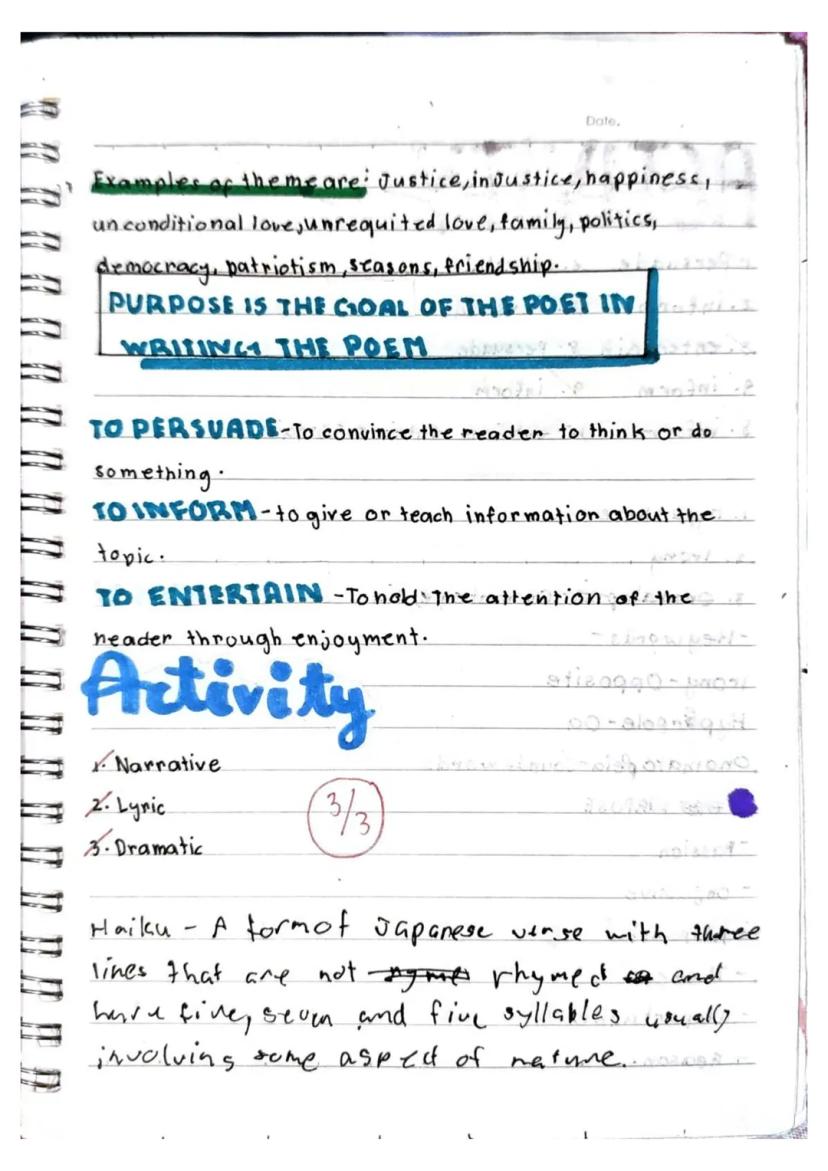 Date.
Examples of theme are: Justice, injustice, happiness,
unconditional love, unrequited love, family, politics,
democracy, patriotism, seasons, friendship.
PURPOSE IS THE GOAL OF THE POET IN
WRITING THE POEM
TO PERSUADE - To convince the reader to think or do
something.
TO INFORM - to give or teach information about the
topic.
TO ENTERTAIN - To hold the attention of the
reader through enjoyment.
Activity
1. Narrative
2. Lyric
3/3
3. Dramatic
Haiku - A form of Japanese verse with three
lines that are not rhymed and
have five, seven and five syllables usually
involving some aspect of nature.